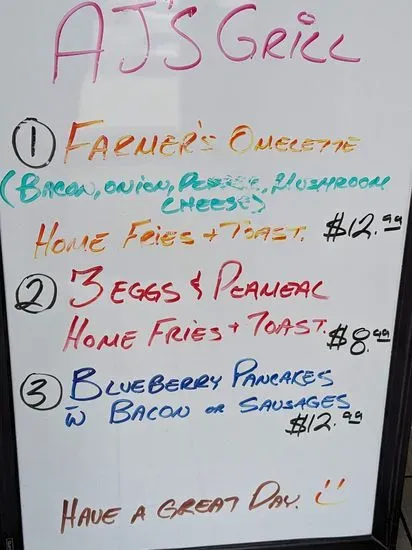 AJ's GRILL
① FARMER'S OMELETTE
(BACON, ONION, PEPPER, MUSHROOM
CHEESE)
HOME FRIES + TOAST. $12.99
② 3 EGGS & PEAMEAL
HOME FRIES + TOAST. $8.99
③ BLUEBERRY PANCAKES
W BACON OR SAUSAGES
$12.99
HAVE A GREAT DAY.